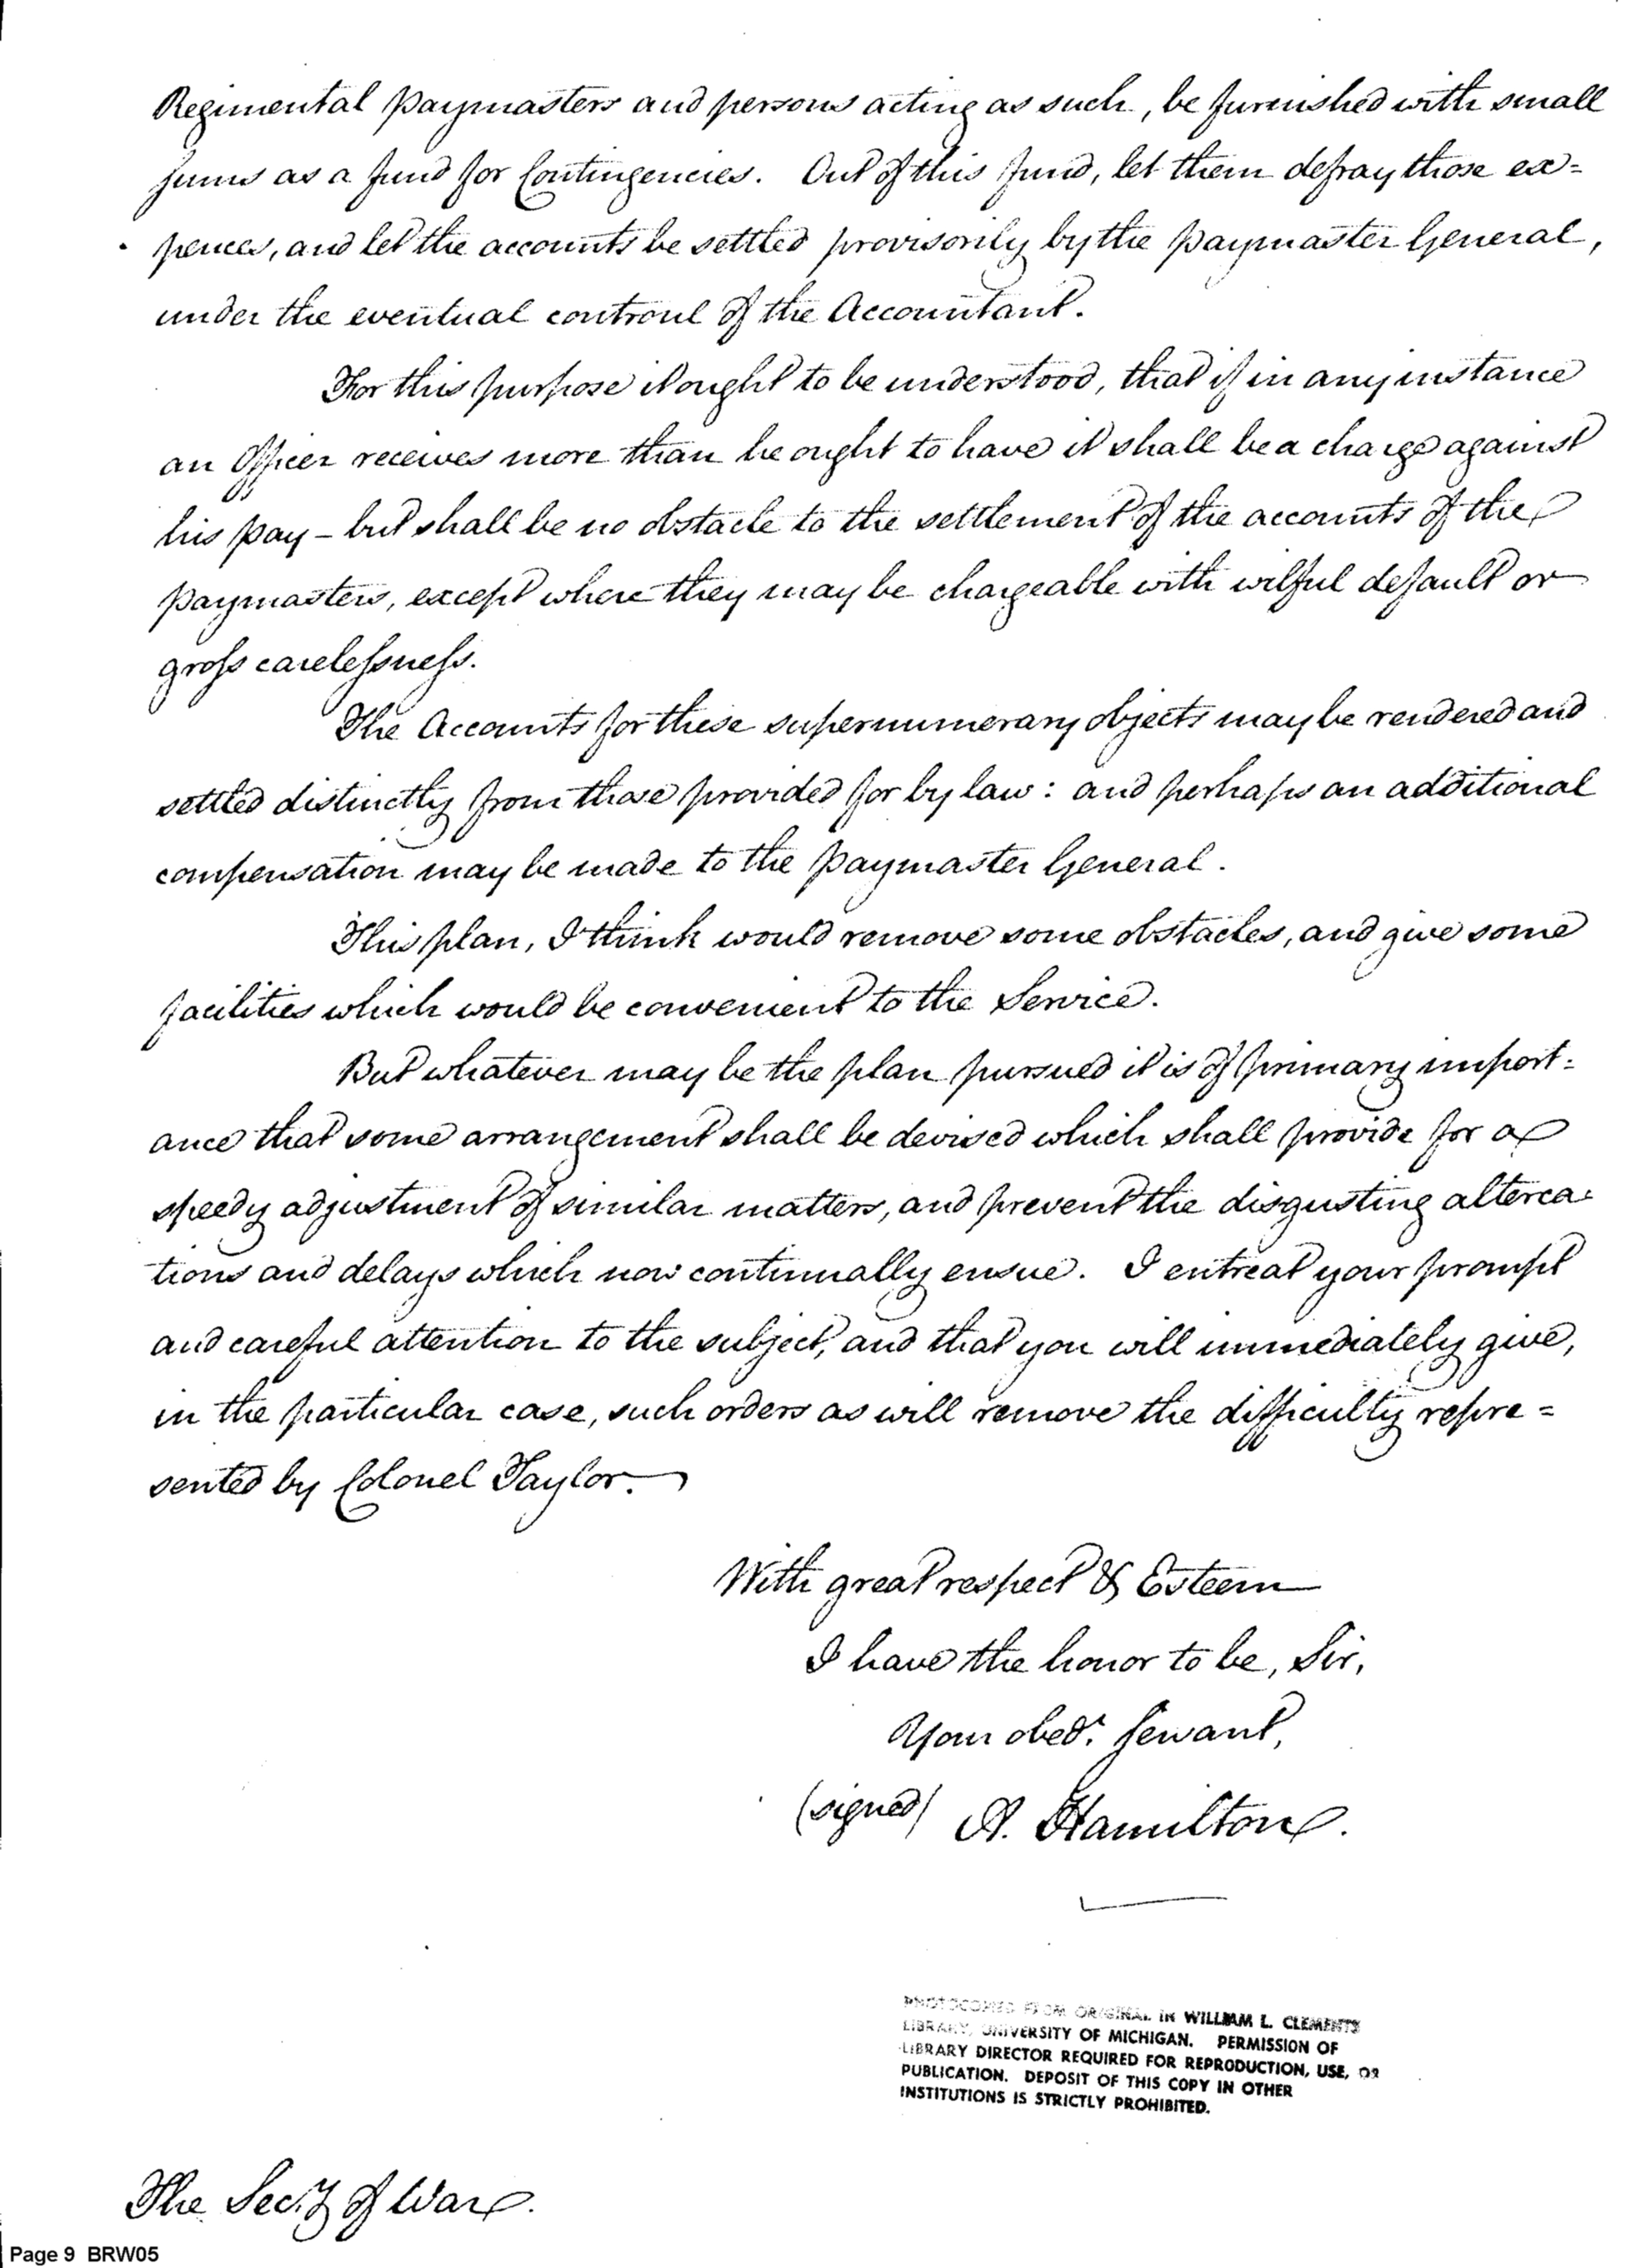 Regimental Paymasters and persons acting as such, be furnished with small
sums as a fund for Contingencies. Out of this fund, let them defray those ex=
pences, and let the accounts be settled provisorily by the Paymaster General,
under the eventual controul of the Accountant.
For this purpose it ought to be understood, that if in any instance
an Officer receives more than he ought to have it shall be a charge against
his pay – but shall be no obstacle to the settlement of the accounts of the
Paymasters, except where they may be chargeable with wilful default or
gross carelessness.
The Accounts for these supernumerary objects may be rendered and
settled distinctly from those provided for by law: and perhaps an additional
compensation may be made to the Paymaster General.
This plan, I think would remove some obstacles, and give some
facilities which would be convenient to the Service.
But whatever may be the plan pursued it is of primary import=
ance that some arrangement shall be devised which shall provide for a
speedy adjustment of similar matters, and prevent the disgusting alterca=
tions and delays which now continually ensue. I entreat your prompt
and careful attention to the subject, and that you will immediately give,
in the particular case, such orders as will remove the difficulty repre=
sented by Colonel Taylor.
With great respect & Esteem
I have the honor to be, Sir,
Your obedt. Servant,
(signed) A. Hamilton.
PHOTOCOPIED FROM ORIGINAL IN WILLIAM L. CLEMENTS
LIBRARY, UNIVERSITY OF MICHIGAN. PERMISSION OF
LIBRARY DIRECTOR REQUIRED FOR REPRODUCTION, USE, OR
PUBLICATION. DEPOSIT OF THIS COPY IN OTHER
INSTITUTIONS IS STRICTLY PROHIBITED.
The Secy. of War.
Page 9 BRW05